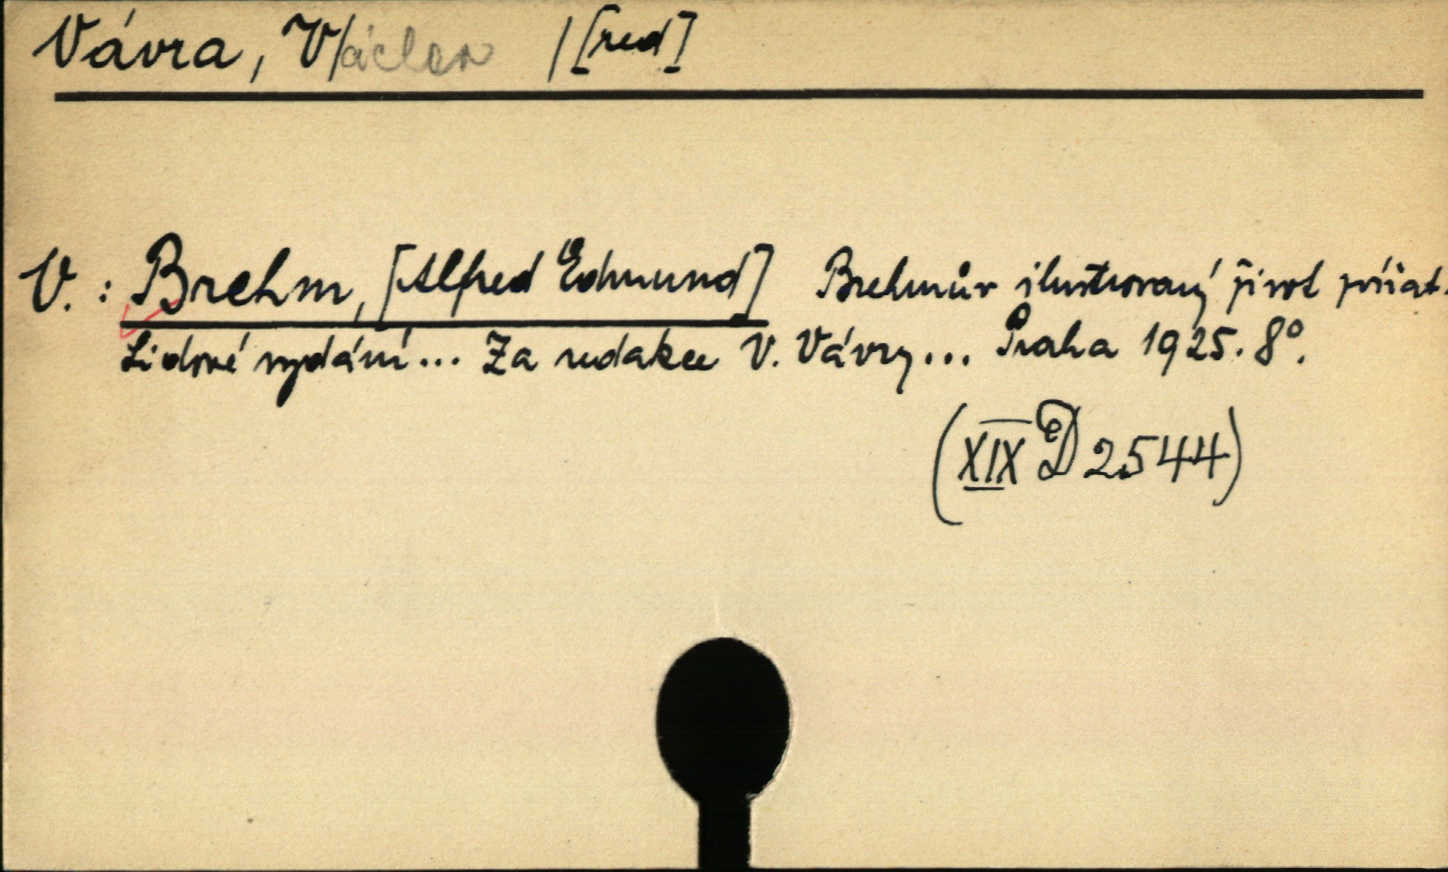 Vávra, V/áclav /[red]
V.: Brehm, [Alfred Edmund] Brehmův ilustrovaný život zvířat.
Lidové vydání... Za redakce V. Vávry... Praha 1925. 8°.
(XIX D 2544)